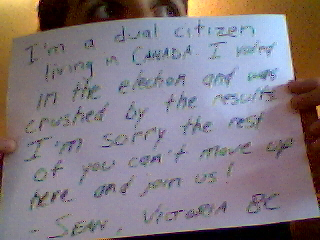 I'm a dual citizen
living in CANADA. I voted
in the election and was
crushed by the results
I'm sorry the rest
of you can't move up
here and join us!
- SEAN, VICTORIA BC